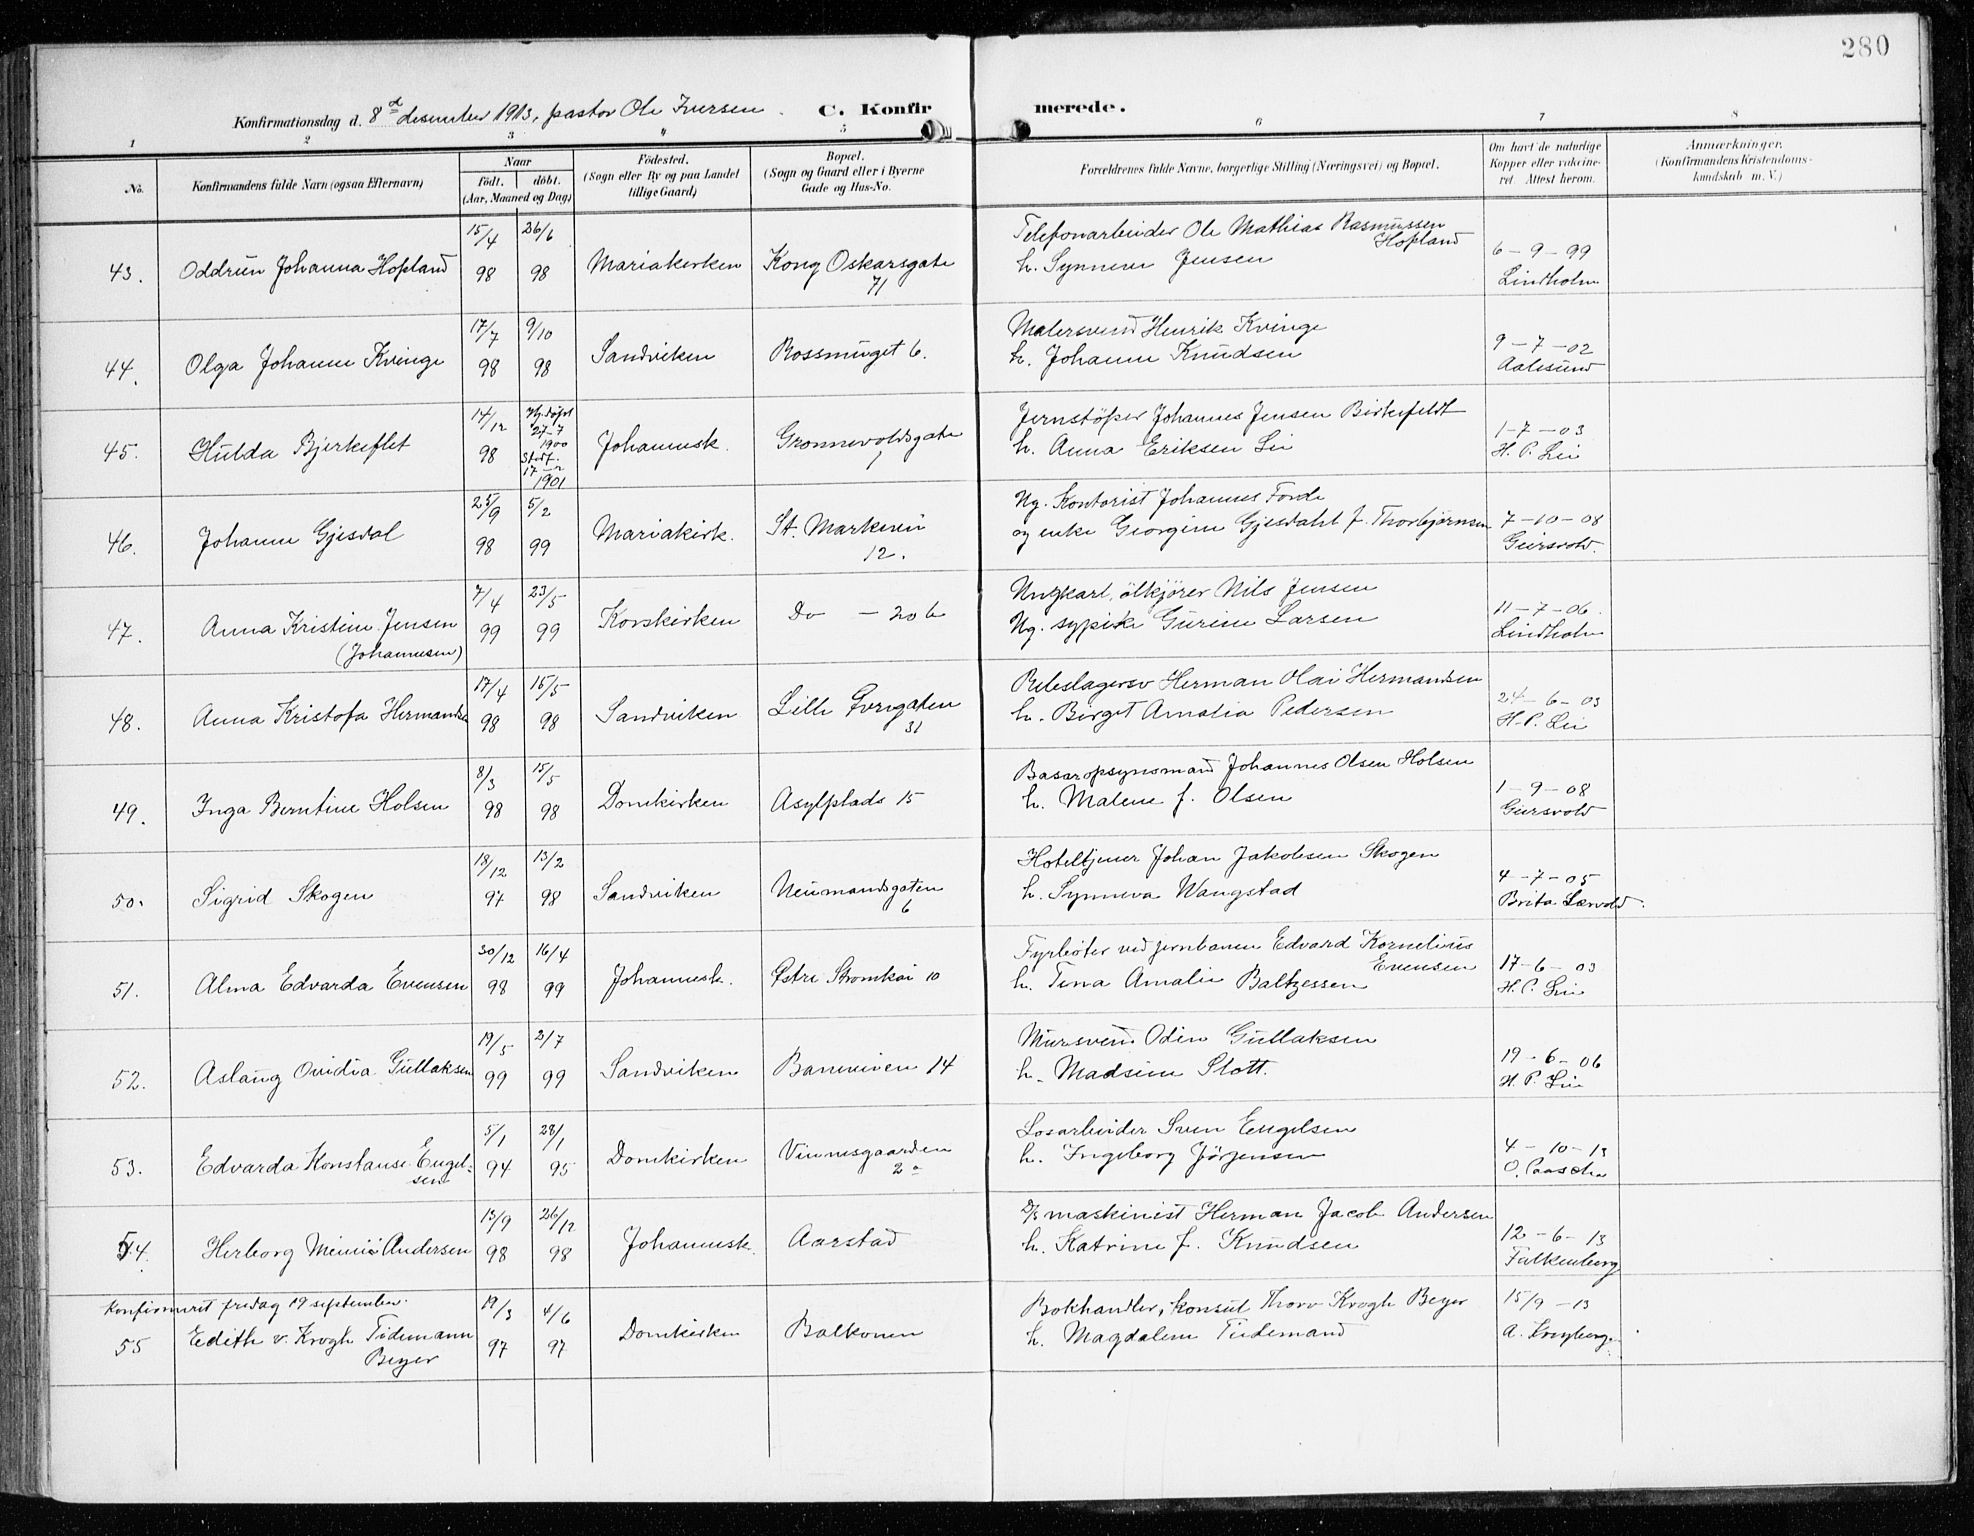 280
Konfirmationsdag d. 8d desember 1913, pastor Ole Iversen. C. Konfirmerede.
1 2 3 4 5 6 7 8
No. Konfirmandens fulde Navn (ogsaa Efternavn) Naar Födt. döbt. (Aar, Maaned og Dag) Födested. (Sogn eller By og paa Landet tillige Gaard) Bopæl. (Sogn og Gaard eller i Byerne Gade og Hus-No. Forældrenes fulde Navne, borgerlige Stilling (Næringsvei) og Bopæl. Om havt de naturlige Kopper eller vaccineret. Attest herom. Anmærkninger. (Konfirmandens Kristendomskundskab m. V.)
43. Oddrun Johanna Hopland 15/4 98 26/6 98 Mariakirken Kong Oskarsgate 71 Telefonarbeider Ole Mathias Rasmussen Hopland h. Synneve Jensen 6-9-99 Lindholm
44. Olga Johanne Kvinge 17/7 98 9/10 98 Sandviken Rossmuget 6. Malersvend Henrik Kvinge h. Johanne Knudsen 9-7-02 Aalesund
45. Hulda Bjerkeflet 14/12 98 Hj.døpt 27-7 1900 Stedf. 17-2 1901 Johannesk. Grønnevoldsgate 1 Jernstöper Johannes Jensen Birkefeldt h. Anna Eriksen Lie 1-7-03 H. P. Lie
46. Johanne Gjesdal 25/9 98 5/2 99 Mariakirk. St. Markevei 12. Ug. Kontorist Johannes Førde og enke Georgine Gjesdahl f. Thorbjørnsen 7-10-08 Geirsvold.
47. Anna Kristine Jensen (Johannesen) 7/4 99 23/5 99 Korskirken Do - 20 b Ungkarl, ölkjörer Nils Jensen Ug. sypike Gurine Larsen 11-7-06. Lindholm
48. Anna Kristofa Hermandsen 17/4 98 15/5 98 Sandviken Lille Øvregaten 31 Rebslagersv Herman Olai Hermandsen h. Birget Amalia Pedersen 24-6-03 H. P. Lie
49. Inga Berntine Holsen 8/3 98 15/5 98 Domkirken Asylplads 15 Basaropsynsmand Johannes Olsen Holsen h. Malene f. Olsen 1-9-08 Geirsvold
50. Sigrid Skogen 18/12 97 13/2 98 Sandviken Neumandsgaten 6 Hoteltjener Johan Jakobsen Skogen h. Synneva Wangstad 4-7-05 Brita Lervold.
51. Alma Edvarda Evensen 30/12 98 16/4 99 Johannesk. Østre Strømkai 10 Fyrbøter ved jernbanen Edvard Kornelius Evensen h. Tina Amalie Baltzessen 17-6-03 H. P. Lie
52. Aslaug Ovidia Gullaksen 19/5 99 2/7 99 Sandviken Baneveien 14 Mursvend Odin Gullaksen h. Madsine Stott. 19-6-06 H. P. Lie
53. Edvarda Konstanse Engelsen 5/1 94 28/1 95 Domkirken Vinnesgaarden 2a Løsarbeider Sven Engelsen h. Ingeborg Jørgensen 4-10-13 O. Paasche
54. Herborg Andersen 13/9 98 26/12 98 Johannesk. Aarstad D/s maskinist Herman Jacob Andersen h. Katrine f. Knudsen 12-6-13 Falkenberg
Konfirmeret fredag 19 september.
55 Edith v. Krogh Tidemann Beyer 19/3 97 4/6 97 Domkirken Balkonen Bokhandler, konsul Thorv Krogh Beyer h. Magdalene Tidemand 15/9-13 A. Kreyberg.